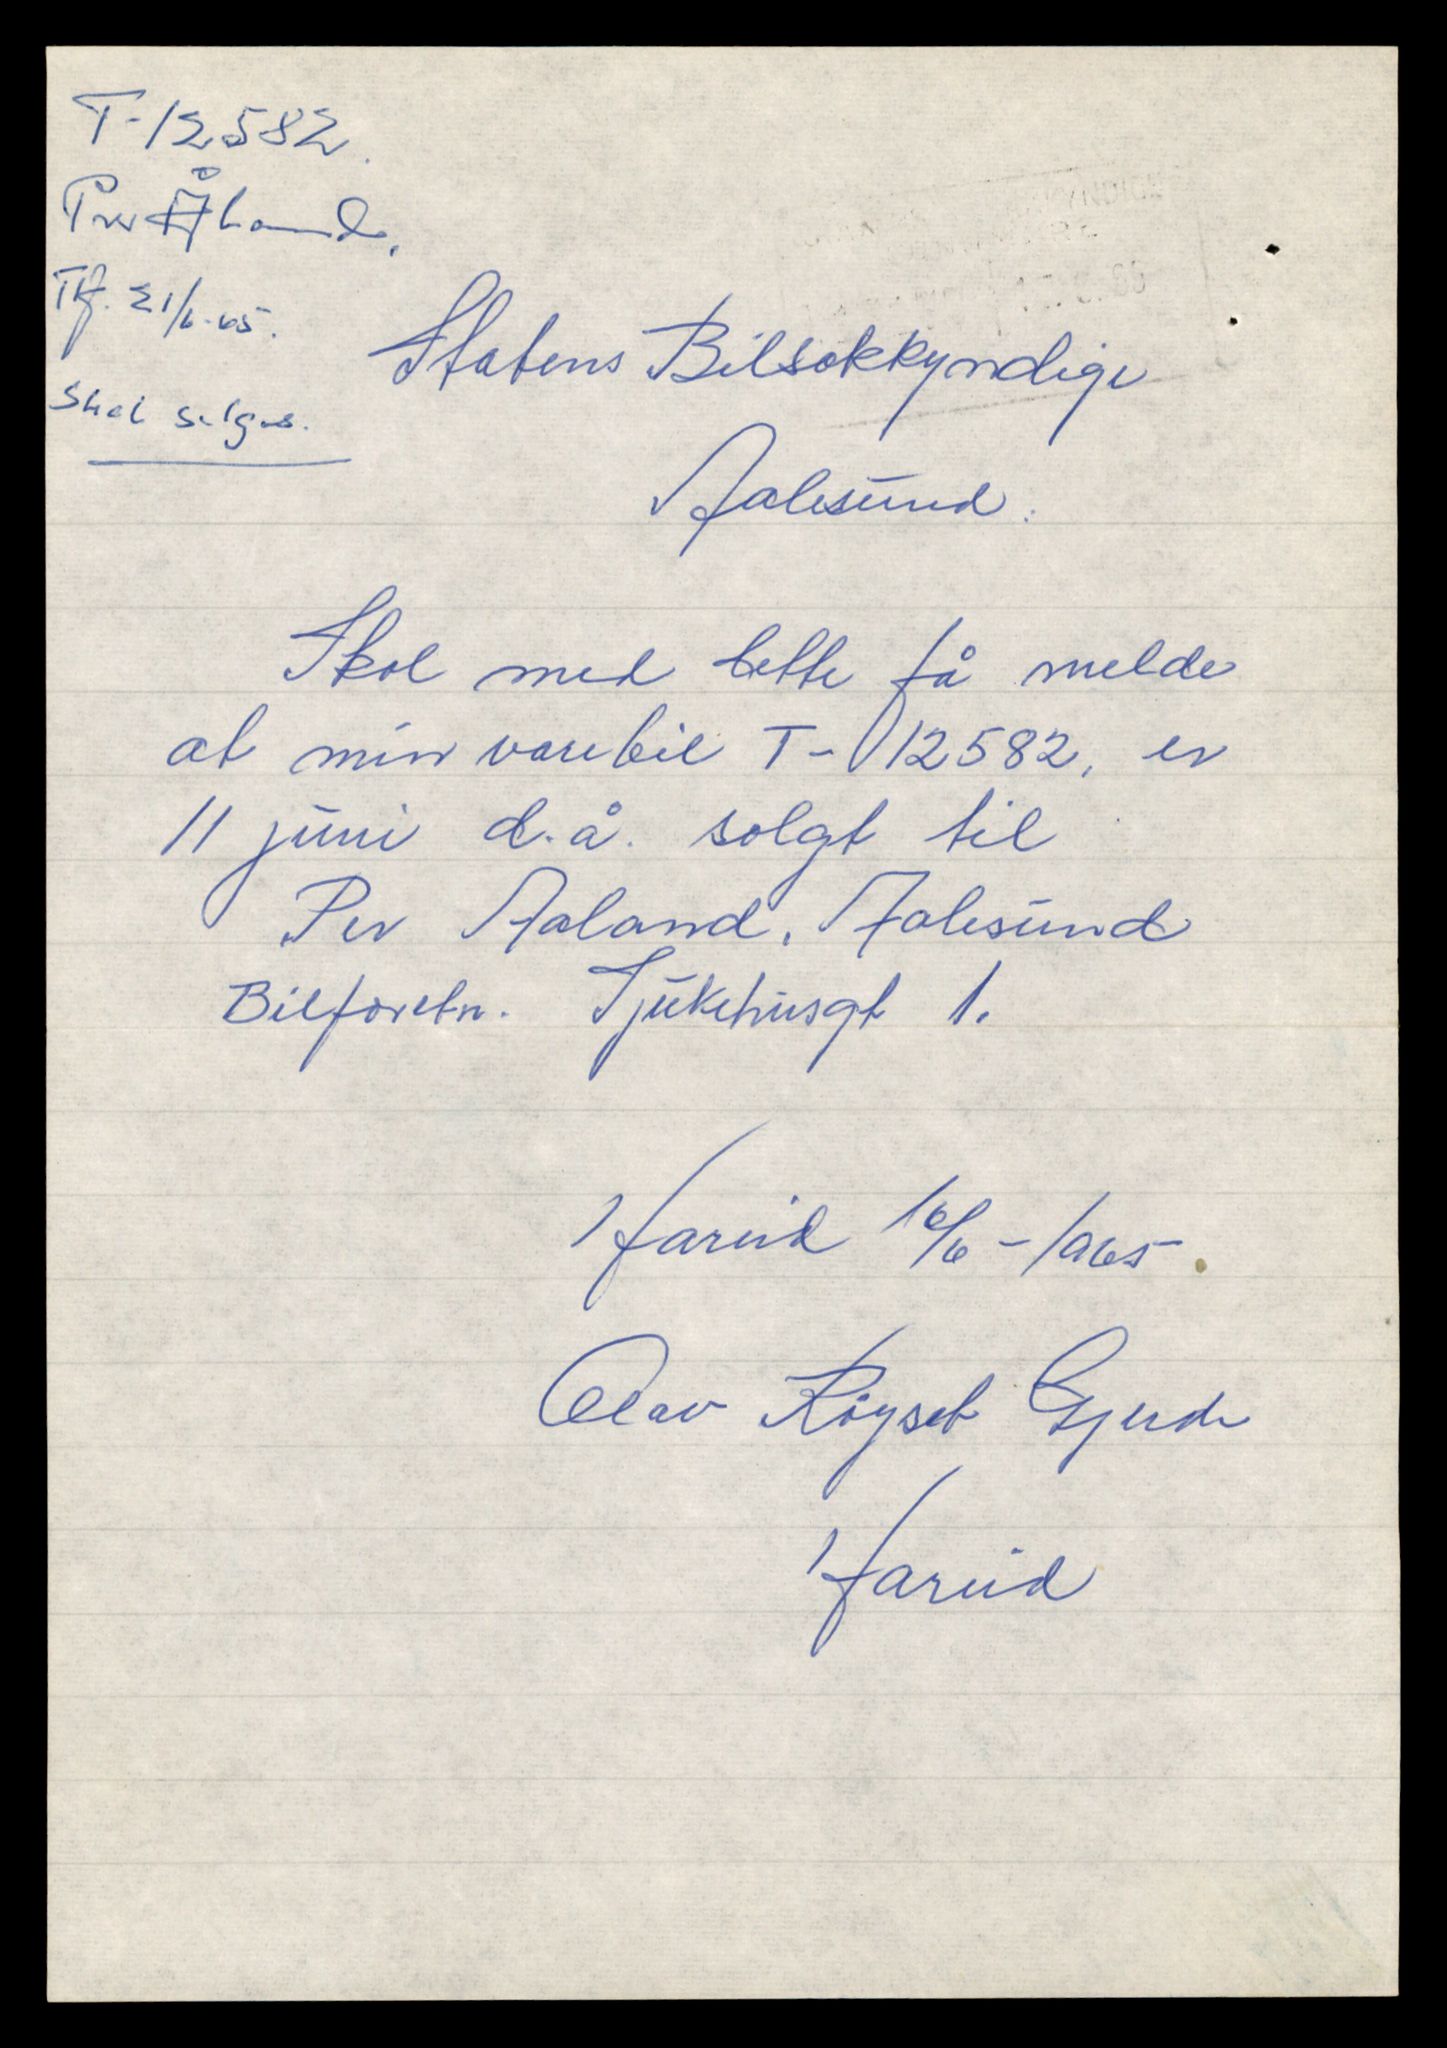 T-12582.
Per Åland.
Tlf. 21/6-65.
Skal selges.
Statens Bilsakkyndige
Aalesund.
Skal med dette få melde
at min varebil T-12582, er
11 juni d.å. solgt til
Per Aaland, Aalesund
Bilforetn. Sjukehusgt 1.
Hareid 16/6-1965.
Olav Röyset Gjerde
Hareid